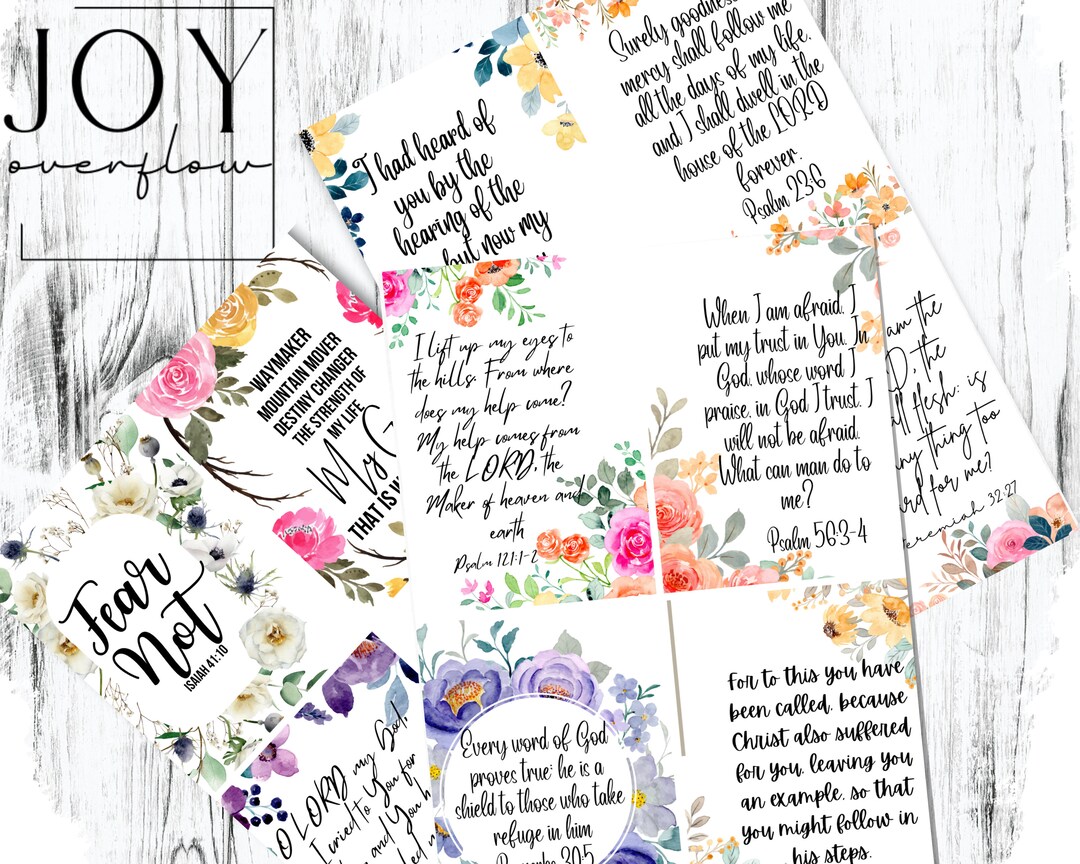 JOY
overflow
Surely goodness
mercy shall follow me
all the days of my life,
and I shall dwell in the
house of the LORD
forever.
Psalm 23:6
I had heard of
you by the
hearing of the
but now my
WAYMAKER
MOUNTAIN MOVER
DESTINY CHANGER
THE STRENGTH OF
MY LIFE
My
THAT IS
I lift up my eyes to
the hills. From where
does my help come?
My help comes from
the LORD, the
Maker of heaven and
earth
Psalm 121:1-2
When I am afraid, I
put my trust in You. In
God, whose word I
praise, in God I trust, I
will not be afraid.
What can man do to
me?
Psalm 56:3-4
am the
the
flesh; is
thing too
for me?
Jeremiah 32:27
Fear
Not
ISAIAH 41:10
O LORD my God,
I cried to You for
and You
Every word of God
proves true; he is a
shield to those who take
refuge in him
Proverbs 30:5
For to this you have
been called, because
Christ also suffered
for you, leaving you
an example, so that
you might follow in
his steps.